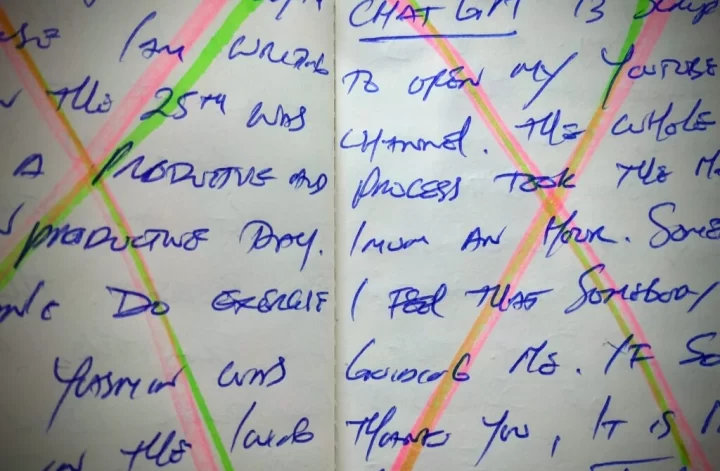 I AM WRITING
THE 25TH WAS
A PRODUCTIVE AND
PRODUCTIVE DAY.
DO EXERCISE
YEASMIN WAS
IN THE
CHAT GPT
TO OPEN MY YOUTUBE
CHANNEL. THE WHOLE
PROCESS TOOK THE
IMUM AN HOUR. SOME
I FEEL THAT SOMEBODY
GUIDING ME. IF SO
THANK YOU, IT IS